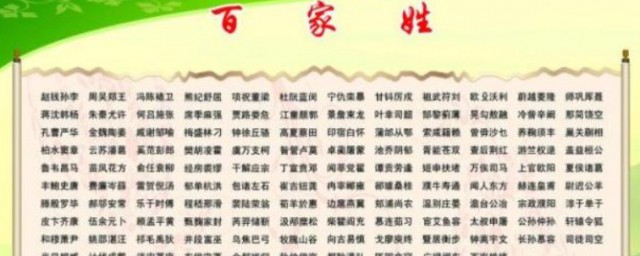 百家姓
赵钱孙李 周吴郑王 冯陈褚卫 熊纪舒屈 项祝董梁 杜阮蓝闵 宁仇栾暴 甘钭厉戎 祖武符刘 欧殳沃利 蔚越夔隆 师巩厍聂
蒋沈韩杨 朱秦尤许 何吕施张 席季麻强 贾路娄危 江童颜郭 景詹束龙 叶幸司韶 郜黎蓟薄 晁勾敖融 冷訾辛阚 那简饶空
孔曹严华 金魏陶姜 戚谢邹喻 梅盛林刁 钟徐丘骆 高夏蔡田 印宿白怀 蒲邰从鄂 索咸籍赖 曾毋沙乜 养鞠须丰 巢关蒯相
柏水窦章 云苏潘葛 奚范彭郎 樊胡凌霍 虞万支柯 昝管卢莫 卓蔺屠蒙 池乔阴郁 胥能苍双 查后荆红 游竺权逯 盖益桓公
鲁韦昌马 苗凤花方 俞任袁柳 经房裘缪 干解应宗 丁宣贲邓 闻莘党翟 谭贡劳逄 姬申扶堵 万俟司马 上官欧阳 夏侯诸葛
丰鲍史唐 费廉岑薛 雷贺倪汤 郁单杭洪 包诸左石 崔吉钮龚 冉宰郦雍 郤璩桑桂 濮牛寿通 闻人东方 赫连皇甫 尉迟公羊
滕殷罗毕 郝邬安常 乐于时傅 程嵇邢滑 裴陆荣翁 荀羊於惠 边扈燕冀 郏浦尚农 温别庄晏 澹台公冶 宗政濮阳 淳于单于
皮卞齐康 伍余元卜 顾孟平黄 甄麴家封 芮羿储靳 汲邴糜松 柴瞿阎充 慕连茹习 宦艾鱼容 太叔申屠 公孙仲孙 轩辕令狐
和穆萧尹 姚邵湛汪 祁毛禹狄 井段富巫 乌焦巴弓 牧隗山谷 向古易慎 戈廖庾终 暨居衡步 钟离宇文 长孙慕容 司徒司空